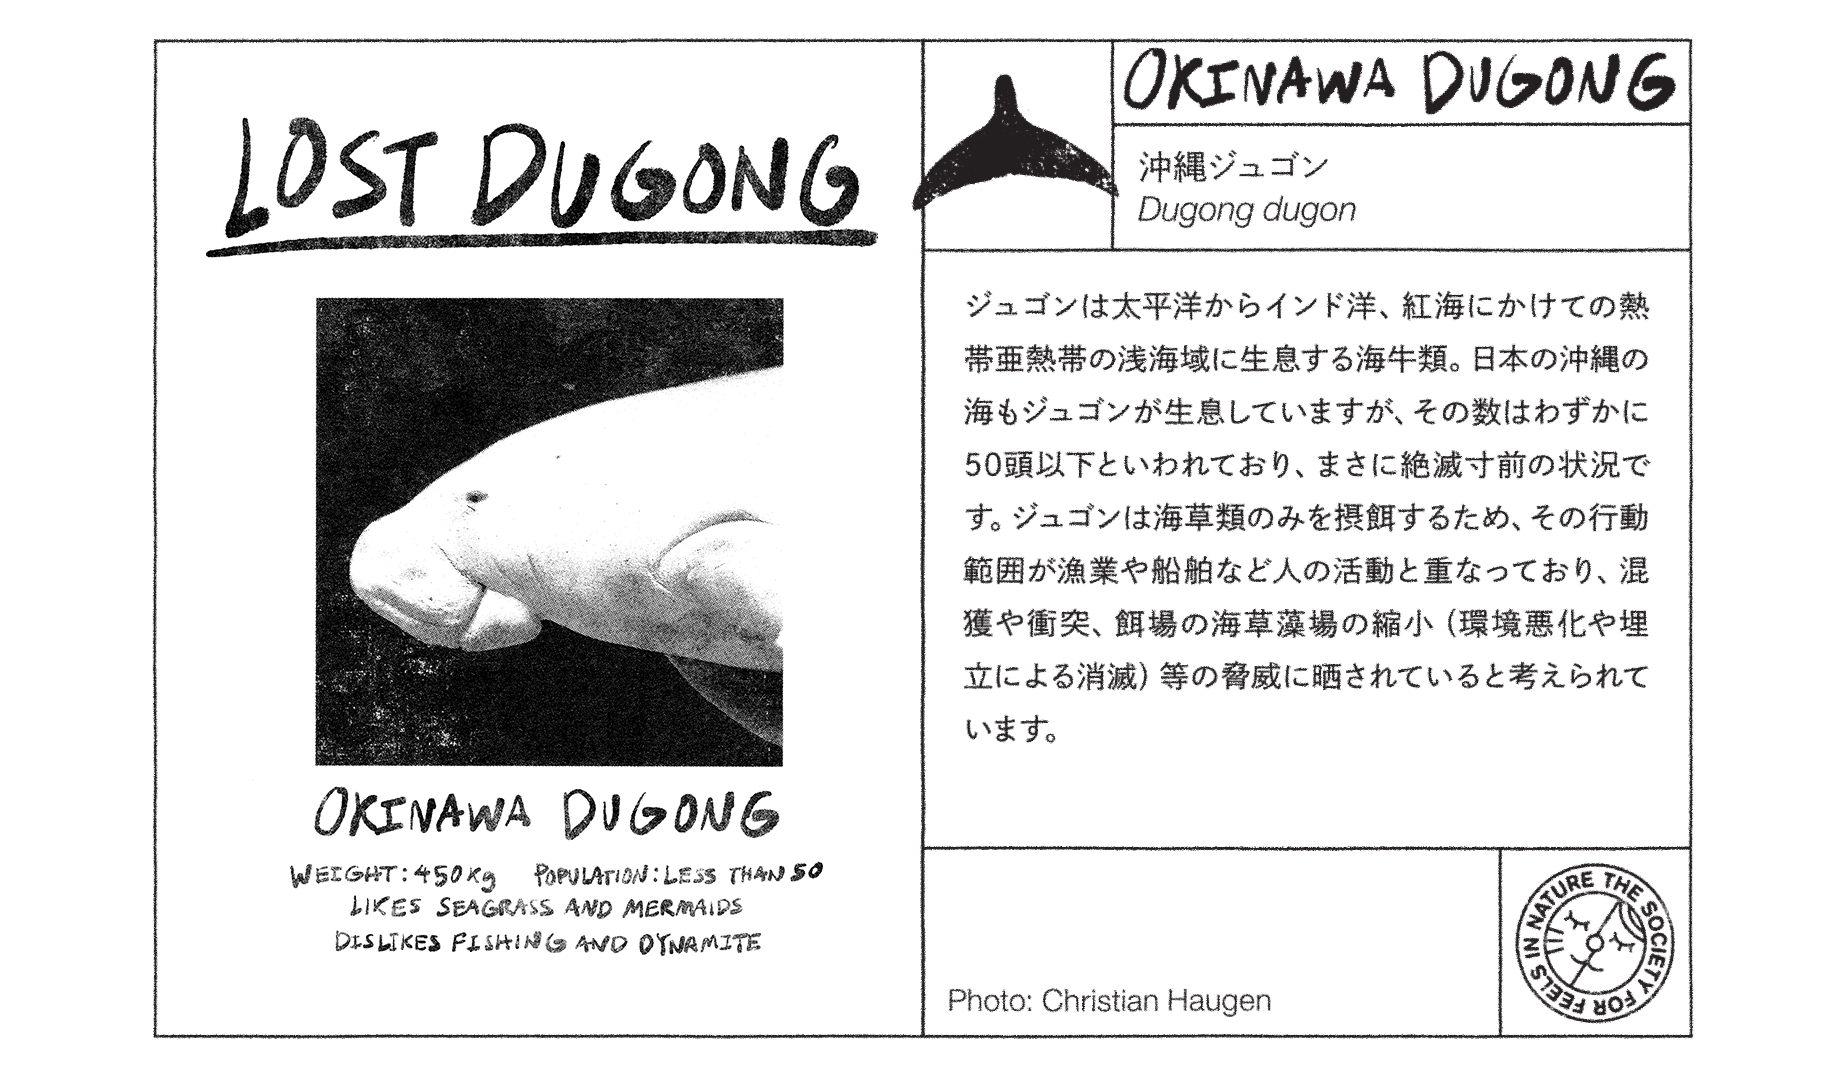 LOST DUGONG
OKINAWA DUGONG
WEIGHT: 450Kg POPULATION: LESS THAN 50
LIKES SEAGRASS AND MERMAIDS
DISLIKES FISHING AND DYNAMITE
OKINAWA DUGONG
沖縄ジュゴン
Dugong dugon
ジュゴンは太平洋からインド洋、紅海にかけての熱
帯亜熱帯の浅海域に生息する海牛類。日本の沖縄の
海もジュゴンが生息していますが、その数はわずかに
50頭以下といわれており、まさに絶滅寸前の状況で
す。ジュゴンは海草類のみを摂餌するため、その行動
範囲が漁業や船舶など人の活動と重なっており、混
獲や衝突、餌場の海草藻場の縮小（環境悪化や埋
立による消滅）等の脅威に晒されていると考えられて
います。
Photo: Christian Haugen
THE SOCIETY FOR FEELS IN NATURE